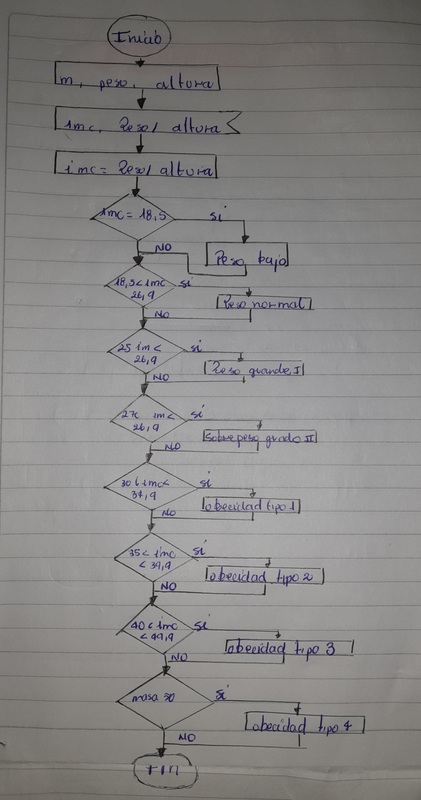 Inicio
m, peso, altura
imc, Peso/ altura
imc = Peso/ altura
imc = 18,5
si
NO
Peso bajo
18,5 < imc
26,9
si
Peso normal
NO
25 im <
26,9
si
Peso grande I
NO
im <
26,9
si
Sobre peso grado II
NO
imc <
34,9
si
obecidad tipo 1
NO
35 < imc
< 39,9
si
obecidad tipo 2
NO
40 < imc
< 49,9
si
obecidad tipo 3
NO
masa 50
si
obecidad tipo 4
NO
FIN